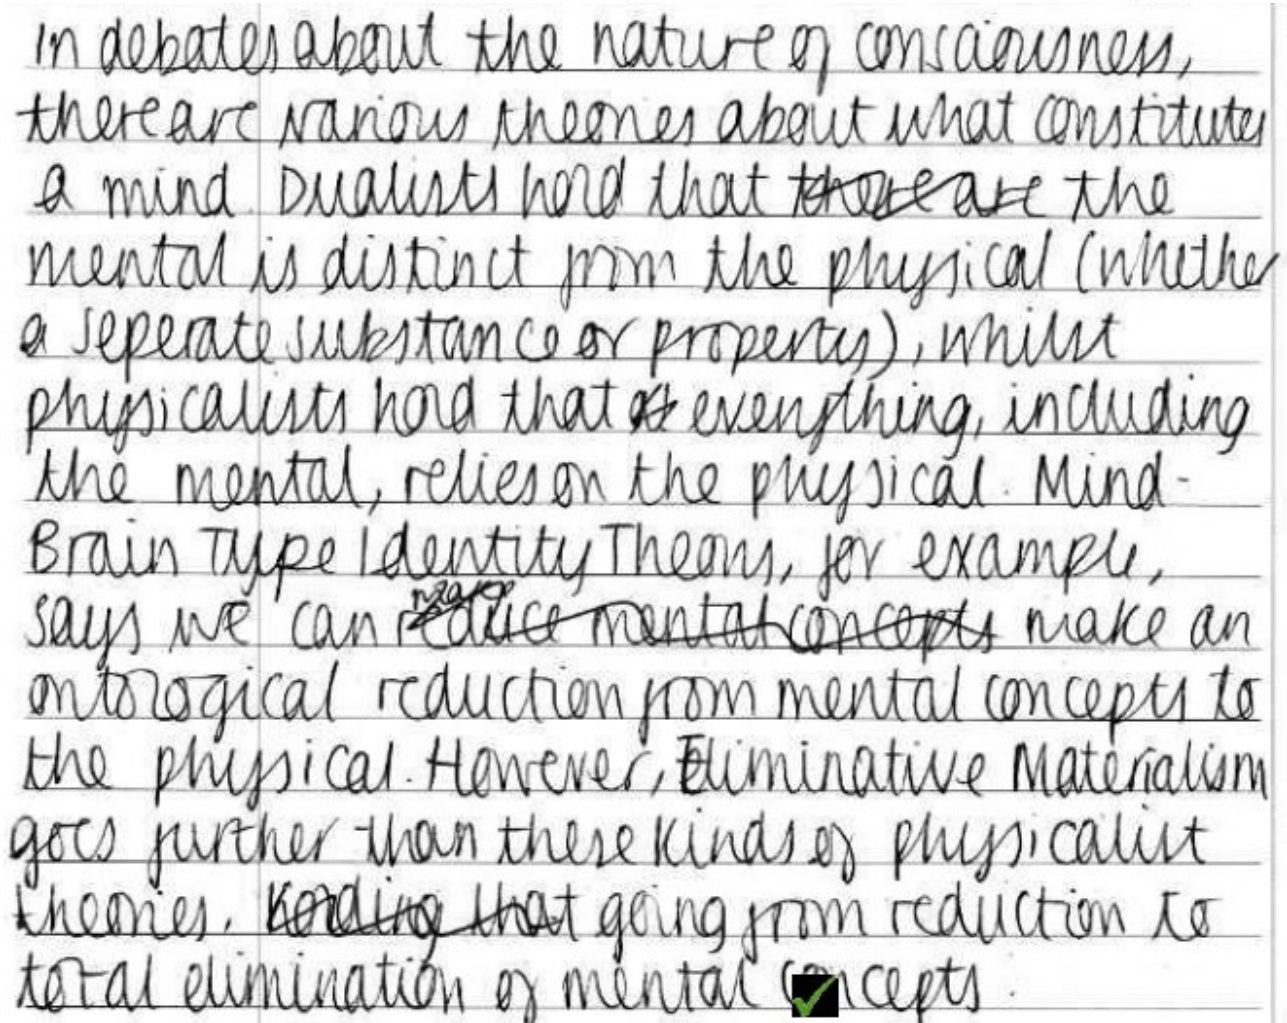 In debates about the nature of consciousness,
there are various theories about what constitutes
a mind. Dualists hold that there are the
mental is distinct from the physical (whether
a seperate substance or property), whilst
physicalists hold that everything, including
the mental, relies on the physical. Mind-
Brain Type Identity Theory, for example,
says we can reduce mental concepts make an
ontological reduction from mental concepts to
the physical. However, Eliminative Materialism
goes further than these kinds of physicalist
theories. holding that going from reduction to
total elimination of mental concepts.